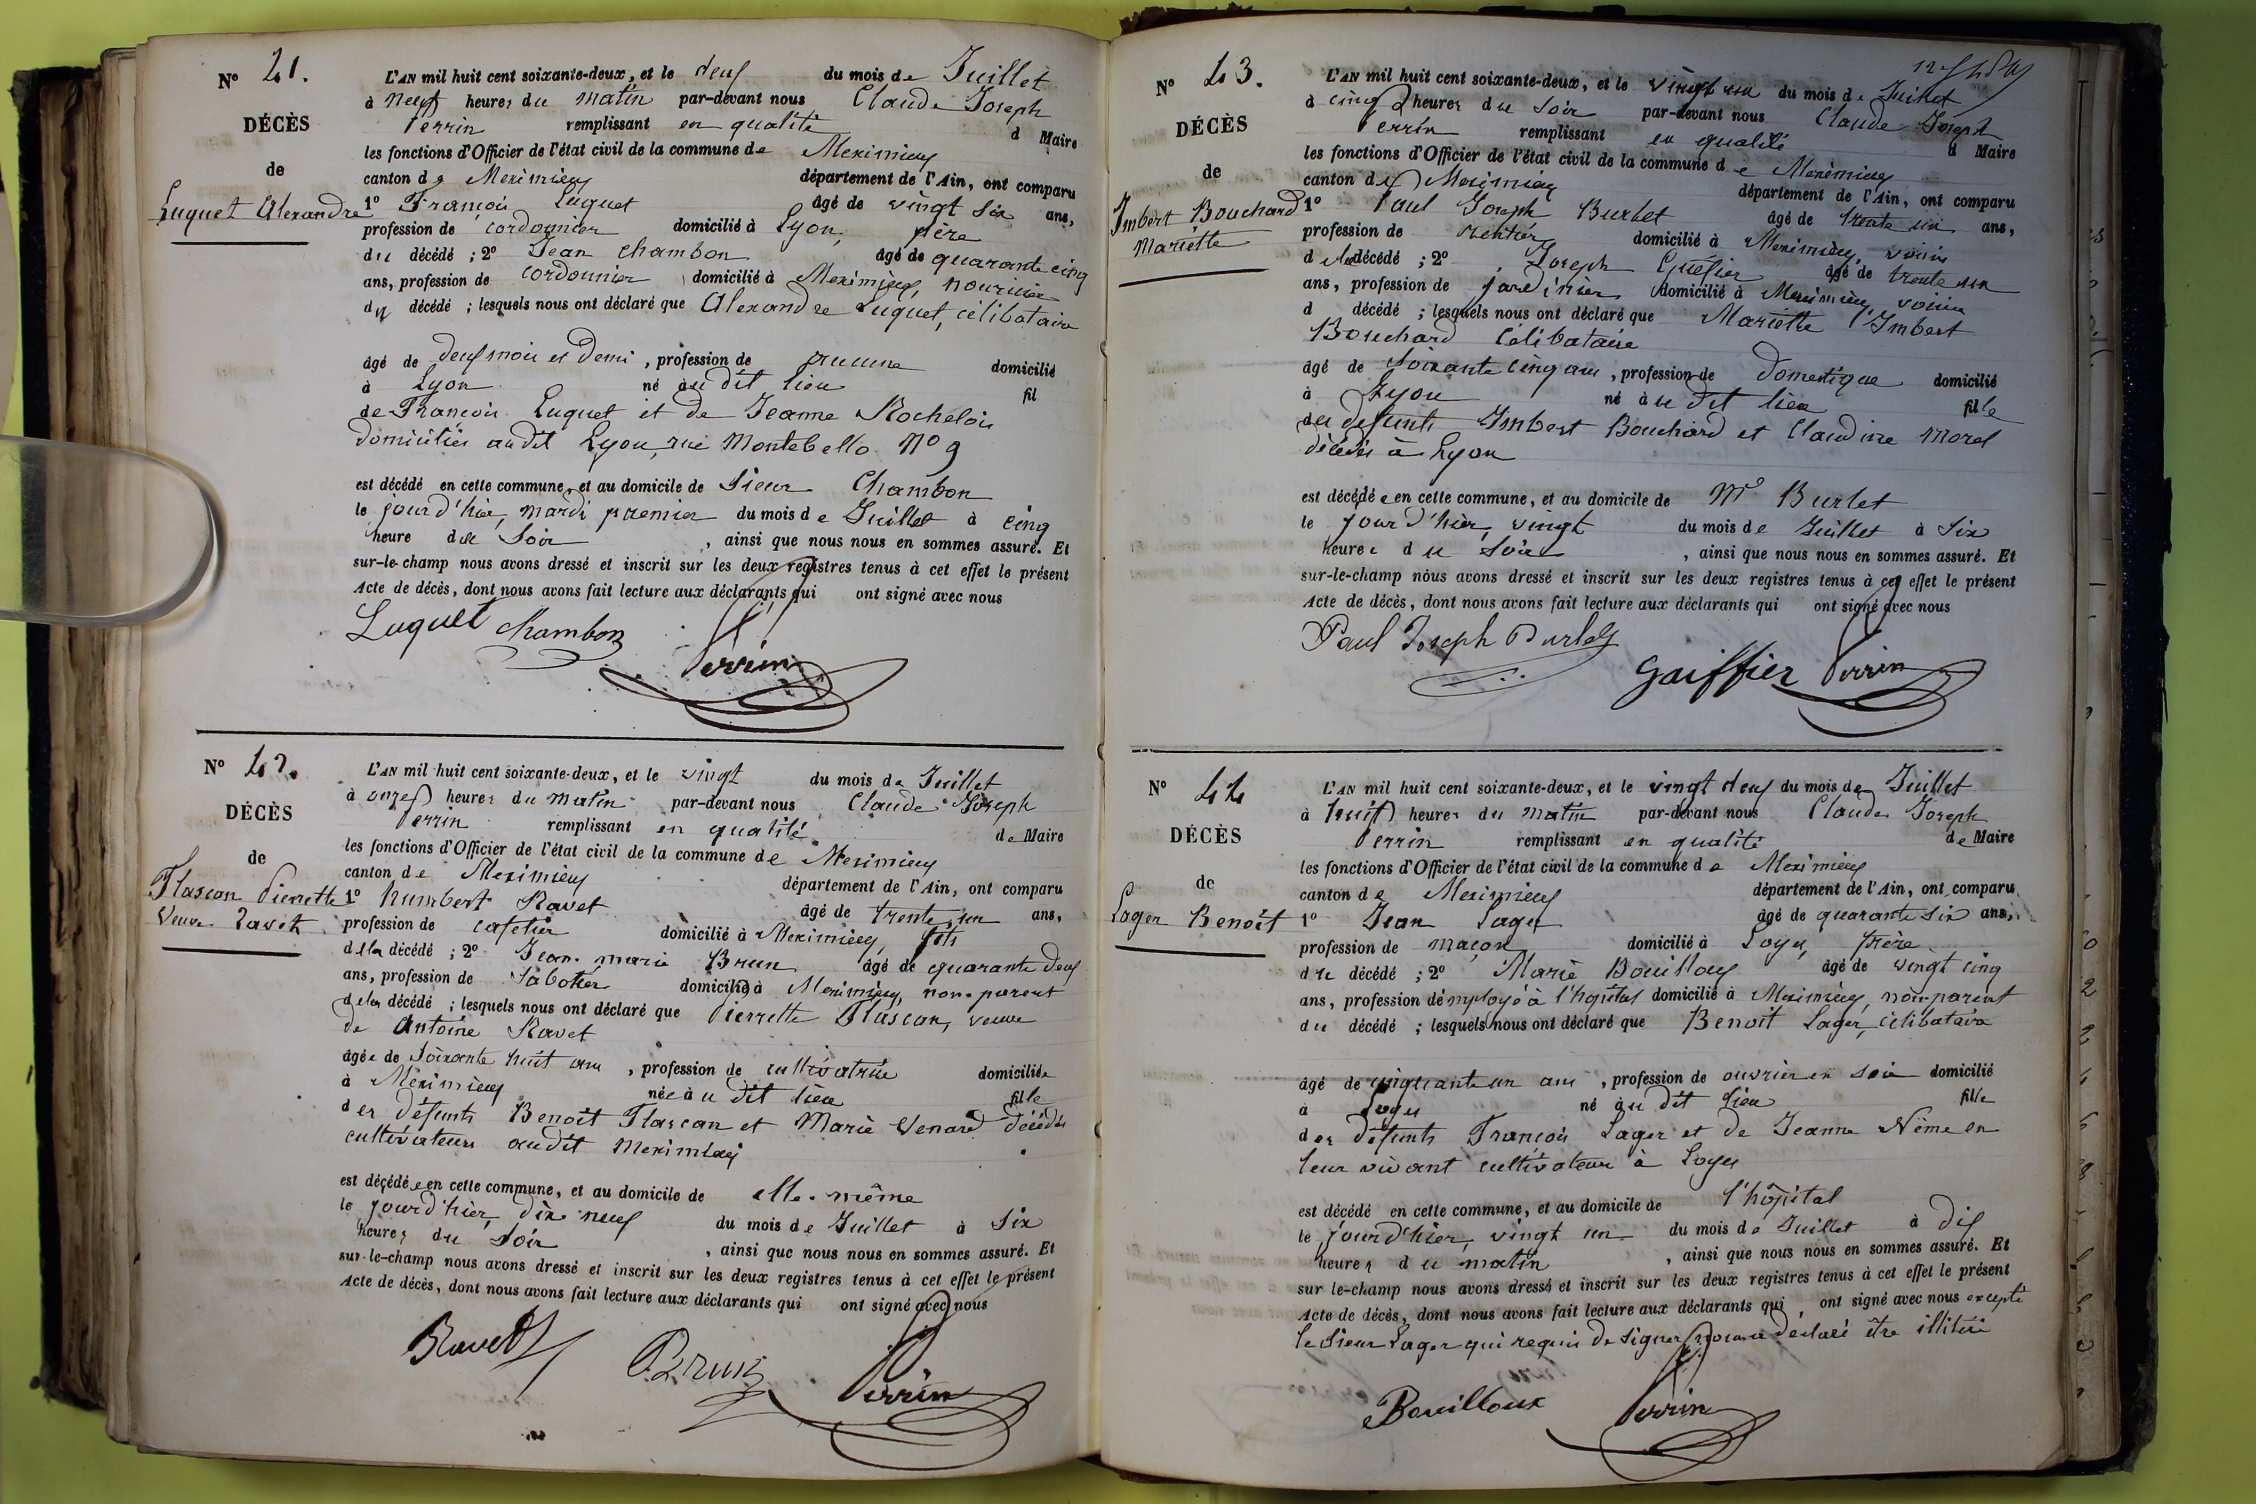 N° 41.
DÉCÈS
de
Luquet Alexandre
L'AN mil huit cent soixante-deux, et le deux du mois de Juillet
à neuf heures du matin par-devant nous Claude Joseph
Perrin remplissant en qualité d Maire
les fonctions d'Officier de l'état civil de la commune de Meximieux
canton de Meximieux département de l'Ain, ont comparu
1° François Luquet âgé de vingt six ans,
profession de cordonnier domicilié à Lyon, père
du décédé ; 2° Jean Chambon âgé de quarante cinq
ans, profession de cordonnier domicilié à Meximieux, nourricier
du décédé ; lesquels nous ont déclaré que Alexandre Luquet, célibataire
âgé de deux mois et demi, profession de aucune domicilié
à Lyon né au dit lieu fil
de François Luquet et de Jeanne Rochelois
domiciliés audit Lyon, rue Montebello N° 9
est décédé en cette commune, et au domicile de Sieur Chambon
le jour d'hier, mardi premier du mois de Juillet à cinq
heure du soir, ainsi que nous nous en sommes assuré. Et
sur-le-champ nous avons dressé et inscrit sur les deux registres tenus à cet effet le présent
Acte de décès, dont nous avons fait lecture aux déclarants qui ont signé avec nous
Luquet Chambon
Perrin
N° 42.
DÉCÈS
de
Flascan Pierrette
Veuve Ravet
L'AN mil huit cent soixante-deux, et le vingt du mois de Juillet
à onze heures du matin par-devant nous Claude Joseph
Perrin remplissant en qualité de Maire
les fonctions d'Officier de l'état civil de la commune de Meximieux
canton de Meximieux département de l'Ain, ont comparu
1° Humbert Ravet âgé de trente un ans,
profession de cafetier domicilié à Meximieux, fils
de la décédé ; 2° Jean-marie Brun âgé de quarante deux
ans, profession de Sabotier domicilié à Meximieux, non-parent
de la décédé ; lesquels nous ont déclaré que Pierrette Flascan, veuve
de Antoine Ravet
âgée de Soixante huit ans, profession de cultivatrice domiciliée
à Meximieux née au dit lieu fille
des défunts Benoît Flascan et Marie Venard décédés
cultivateurs audit Meximieux
est décédée en cette commune, et au domicile de elle-même
le jour d'hier, dix neuf du mois de Juillet à Six
heures du Soir, ainsi que nous nous en sommes assuré. Et
sur-le-champ nous avons dressé et inscrit sur les deux registres tenus à cet effet le présent
Acte de décès, dont nous avons fait lecture aux déclarants qui ont signé avec nous
Ravet
Brun
Perrin
N° 43.
DÉCÈS
de
Imbert Bouchard
Mariette
L'AN mil huit cent soixante-deux, et le vingt un du mois de Juillet
à cinq heures du Soir par-devant nous Claude Joseph
Perrin remplissant en qualité d Maire
les fonctions d'Officier de l'état civil de la commune de Meximieux
canton de Meximieux département de l'Ain, ont comparu
1° Paul Joseph Burlet âgé de trente un ans,
profession de rentier domicilié à Meximieux, voisin
de la décédé ; 2° Joseph âgé de trente un
ans, profession de jardinier domicilié à Meximieux, voisin
d décédé ; lesquels nous ont déclaré que Mariette Imbert
Bouchard Célibataire
âgé de Soixante cinq ans, profession de domestique domicilié
à Lyon né au dit lieu fille
des défunts Imbert Bouchard et Claudine Morel
décédés à Lyon
est décédée en cette commune, et au domicile de Mr Burlet
le jour d'hier, vingt du mois de Juillet à Six
heures du Soir, ainsi que nous nous en sommes assuré. Et
sur-le-champ nous avons dressé et inscrit sur les deux registres tenus à cet effet le présent
Acte de décès, dont nous avons fait lecture aux déclarants qui ont signé avec nous
Paul Joseph Burlet
Gaiffier Perrin
N° 44
DÉCÈS
de
Lager Benoît
L'AN mil huit cent soixante-deux, et le vingt deux du mois de Juillet
à huit heures du matin par-devant nous Claude Joseph
Perrin remplissant en qualité de Maire
les fonctions d'Officier de l'état civil de la commune de Meximieux
canton de Meximieux département de l'Ain, ont comparu
1° Jean Lager âgé de quarante six ans,
profession de maçon domicilié à Loyes, frère
du décédé ; 2° Marie Bouilloux âgé de vingt cinq
ans, profession d'employé à l'hôpital domicilié à Meximieux, non-parent
du décédé ; lesquels nous ont déclaré que Benoît Lager, célibataire
âgé de cinquante un ans, profession de ouvrier en soie domicilié
à Loyes né au dit lieu fille
des défunts François Lager et de Jeanne Nême en
leur vivant cultivateurs à Loyes
est décédé en cette commune, et au domicile de l'hôpital
le jour d'hier, vingt un du mois de Juillet à dix
heures du matin, ainsi que nous nous en sommes assuré. Et
sur le-champ nous avons dressé et inscrit sur les deux registres tenus à cet effet le présent
Acte de décès, dont nous avons fait lecture aux déclarants qui, ont signé avec nous excepté
le Sieur Lager qui requis de signer nous a déclaré être illitéré
Bouilloux Perrin